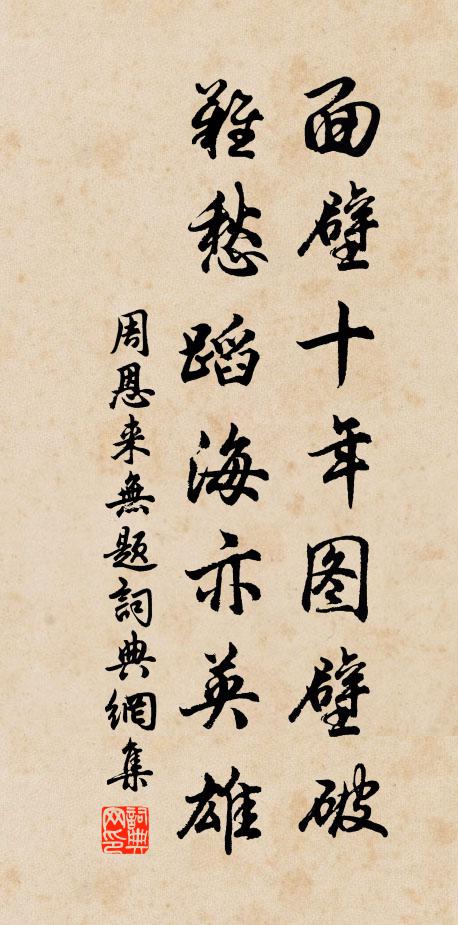 面壁十年图壁破
難愁蹈海亦英雄
周恩来無题詞典網集
詞典网印